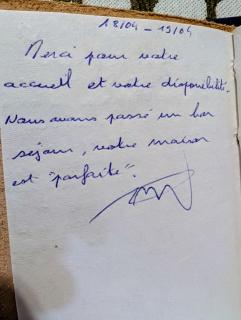 18/04 - 19/04
Merci pour votre
accueil et votre disponibilité.
Nous avons passé un bon
séjour, votre maison
est "parfaite".